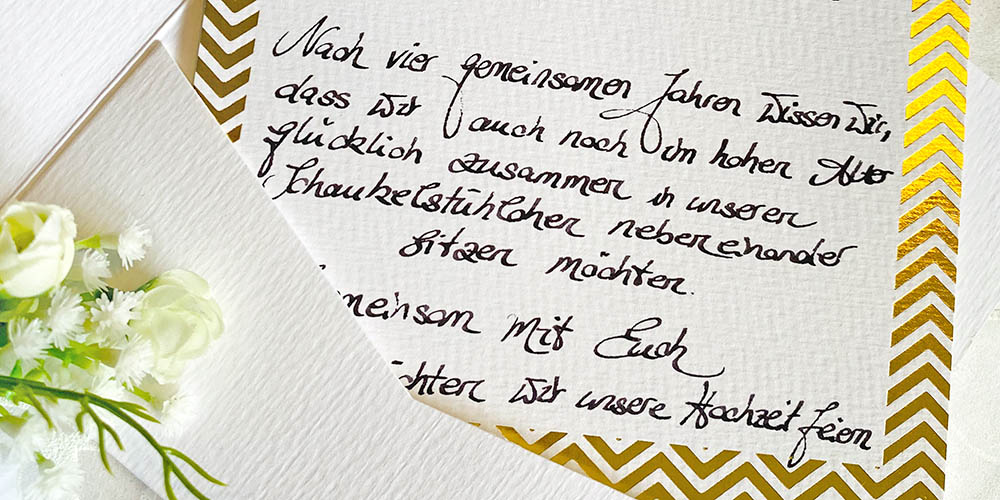 Nach vier gemeinsamen Jahren wissen wir,
dass wir auch noch im hohen Alter
glücklich zusammen in unseren
Schaukelstühlchen nebeneinander
sitzen möchten.
meinsam mit Euch
chten wir unsere Hochzeit feiern